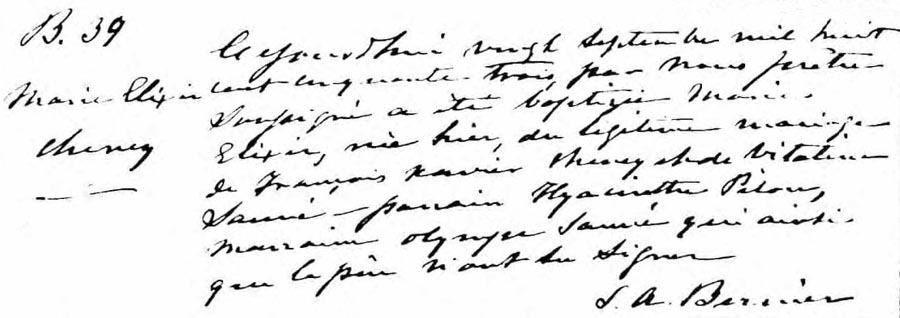 B. 39
Marie Elixir
Cheney
Ce jourdhui vingt septembre mil huit
cent cinquante-trois, par nous prêtre
Soussigné a été baptisée Marie
Elixir, née hier, du légitime mariage
de François Xavier Cheney et de Vitaline
Sauvé - parrain Hyacinthe Pilon,
marraine Olympe Sauvé qui ainsi
que le père n'ont su signer
S. A. Bernier